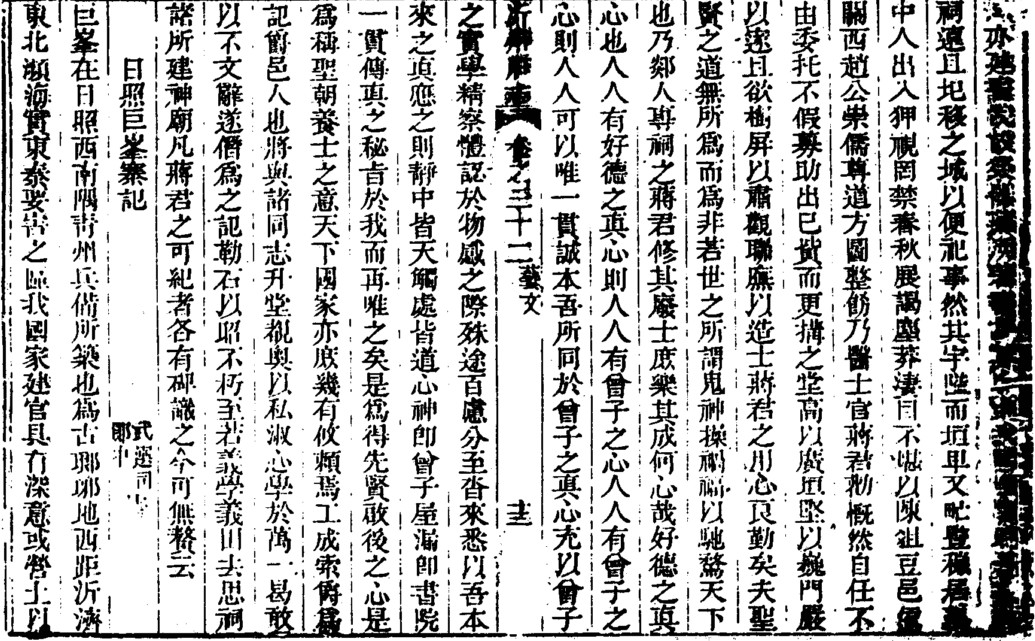 亦建
祠遠且圮移之城以便祀事然其宇陛而垣卑又
中人出入狎視罔禁春秋展謁塵莽淒目不堪以陳俎豆邑
關西趙公崇儒尊道方圖整飭乃醫士官蔣君 慨然自任不
由委托不假募助出己貲而更搆之堂高以廣垣堅以巍門嚴
以邃且欲樹屏以肅觀聯廡以造士蔣君之用心良勤矣夫聖
賢之道無所為而為非若世之所謂鬼神操禍福以馳騖天下
也乃鄒人專祠之蔣君修其廢士庶樂其成何心哉好德之真
心也人人有好德之真心則人人有曾子之心人人有曾子之
心則人人可以唯一貫誠本吾所同於曾子之真心充以曾子
沂州府志 卷之三十二 藝文 十三
之實學精察體認於物感之際殊途百慮分至沓來悉以吾本
來之真應之則靜中皆天觸處皆道心神即曾子屋漏即書院
一貫傳真之秘吾於我而再唯之矣是為得先賢啟後之心是
為稱聖朝養士之意天下國家亦庶幾有攸賴焉工成索
記爵邑人也將與諸同志升堂覩奥以私淑心學於萬一曷敢
以不文辭遂僭為之記勒石以昭不朽至若義學義田去思祠
諸所建神廟凡蔣君之可紀者各有碑識之今可無贅云
日照巨峯寨記 武選司 郎中
巨峯在日照西南隅青州兵備所築也為古瑯琊地西距沂濟
東北瀕海實東泰要害之區我國家建官具有深意或營土以